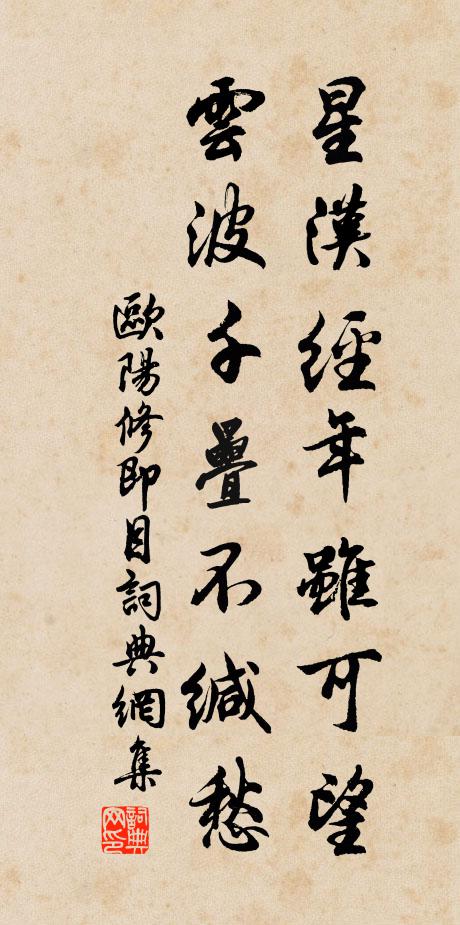 星漢經年雖可望
雲波千疊不緘愁
歐陽修即目詞典網集
詞典網印